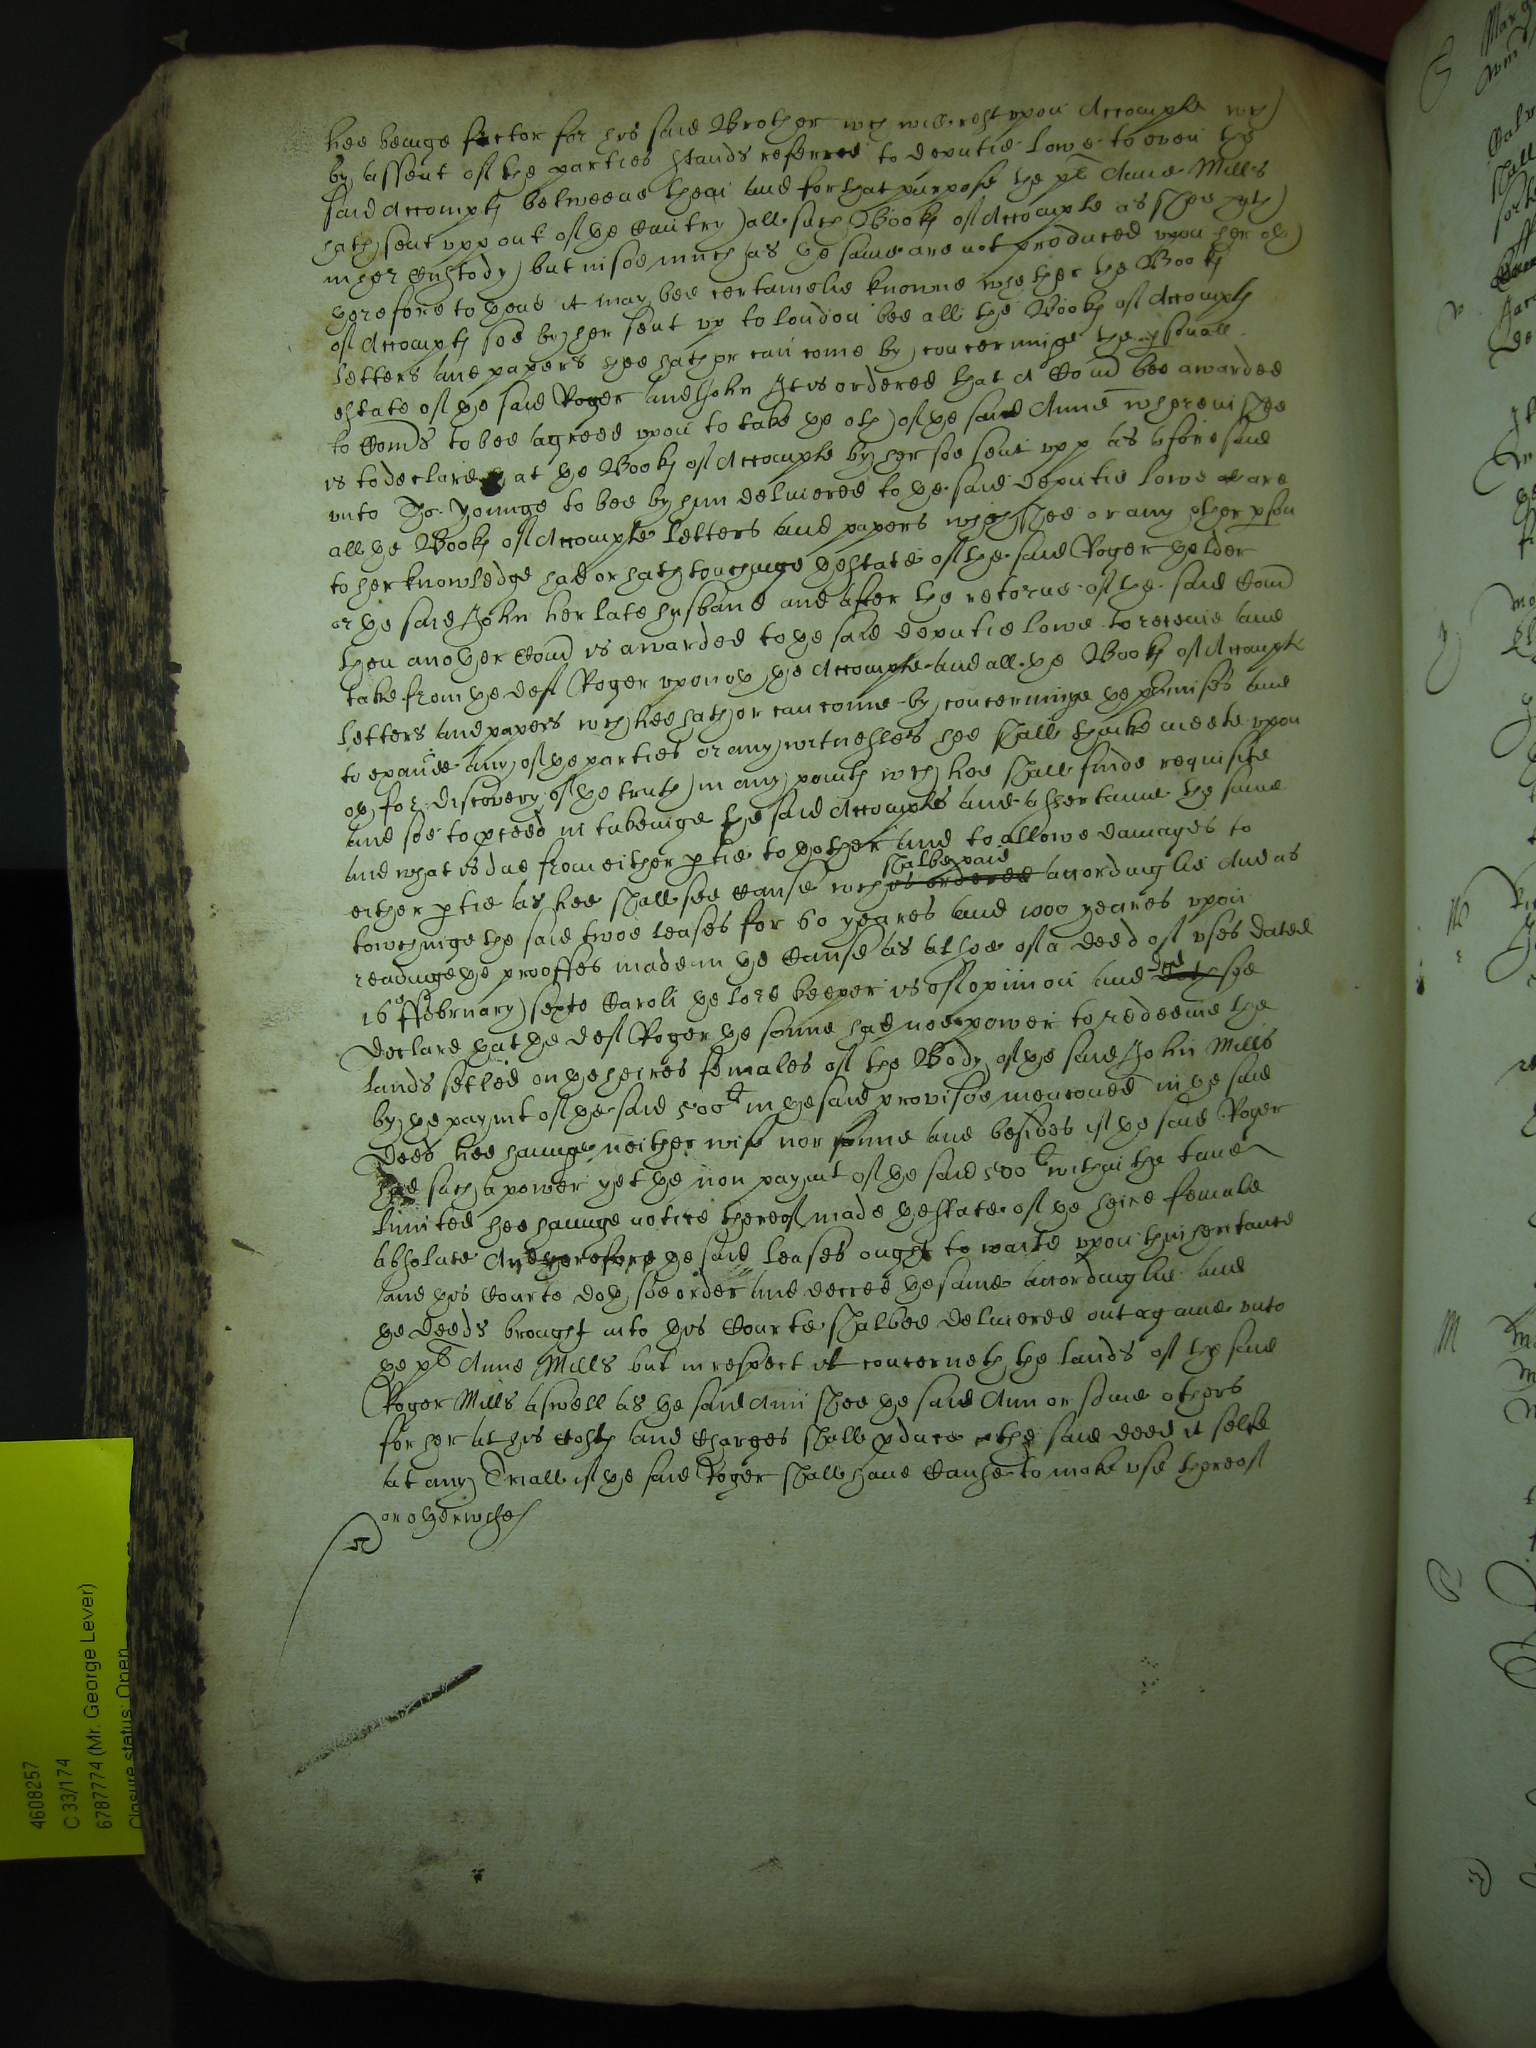 hee beinge factor for his said Brother wch will rest vpon Accompte wch
by assent of the parties stands referred to deputie Lowe to even the
said Accompts betweene them and for that purpose the plt Anne Mills
hath sent vpp out of ye Cuntry all such Books of Accompte as shee hath
in her Custody but in soe much as ye same are not produced vpon her oth
therefore to thend it may bee certainelie knowne whether the Books
of Accompts soe by her sent vp to London bee all the Books of Accompts
letters and papers shee hath or can come by concerninge the psonall
estate of ye said Roger and John It is ordered that A Comd bee awarded
to Comrs to bee agreed vpon to take ye oth of ye said Anne wherein shee
is to declare that ye Books of Accompte by her soe sent vpp as aforesaid
vnto Tho: Younge to bee by him deliuered to ye said deputie Lowe are
all ye Books of Accompte letters and papers which shee or any other pson
to her knowledge had or hath touchinge ye estate of the said Roger thelder
or ye said John her late husband and after the retorne of the said Comd
then another Comd is awarded to ye said deputie Lowe to receive and
take from ye deft Roger vpon oth ye Accompte and all ye Books of Accompte
letters and papers wch hee hath or can come by concerninge ye pmises and
to examine any of ye parties or any witnesses hee shall thinke meete vpon
oth for discovery of ye truth in any points wch hee shall finde requisite
and soe to pceed in takeinge the said Accompts and assertaine the same
and what is due from either ptie to thother and to allowe damages to
either ptie as hee shall see Cause wch is ordered shalbe paid accordinglie And as
touchinge the said twoe leases for 60 yeares and 1000 yeares vpon
readinge ye prooffes made in ye Cause as alsoe of a deed of vses dated
16o ffebruary sexto Caroli ye lord keeper is of opinion and doth did soe
declare that ye deft Roger ye sonne had noe power to redeeme the
lands setled on ye heires females of the Body of ye said John Mills
by ye paymt of ye said 500li in ye said provisoe mencioned in ye said
deed hee hauinge neither wife nor sonne and besides if ye said Roger
had such a power yet ye non paymt of ye said 500li within the time
limited hee hauinge notice thereof made ye estate of ye heire female
absolute And therefore ye said leases ought to waite vpon thinheritance
and this Courte doth soe order and decree ye same accordinglie and
ye deeds brought into this Courte shalbee deliuered out againe vnto
ye plt Anne Mills but in respect it concerneth the lands of the said
Roger Mills aswell as ye said Ann shee ye said Ann or some others
for her at his Costs and Charges shall pduce the said deed it selfe
at any Triall if ye said Roger shall haue Cause to make vse thereof
or otherwise
4608257
C 33/174
6787774 (Mr. George Lever)
Closure status: Open